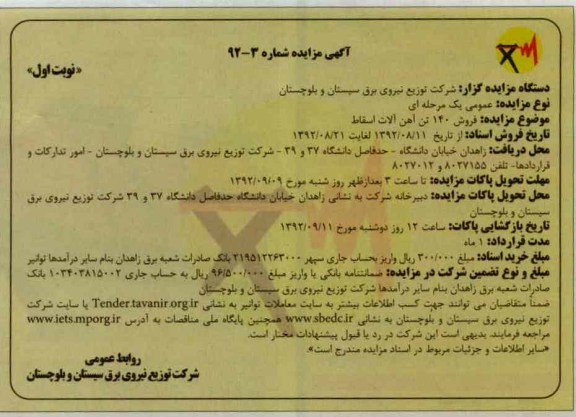 آگهی مزایده شماره ۳-۹۲
«نوبت اول»
دستگاه مزایده گزار: شرکت توزیع نیروی برق سیستان و بلوچستان
نوع مزایده: عمومی یک مرحله ای
موضوع مزایده: فروش ۱۴۰ تن آهن آلات اسقاط
تاریخ فروش اسناد: از تاریخ ۱۳۹۲/۰۸/۱۱ لغایت ۱۳۹۲/۰۸/۲۱
محل دریافت: زاهدان خیابان دانشگاه - حدفاصل دانشگاه ۳۷ و ۳۹ - شرکت توزیع نیروی برق سیستان و بلوچستان - امور تدارکات و
قراردادها- تلفن ۸۰۲۷۱۵۵ و ۸۰۲۷۰۱۲
مهلت تحویل پاکات مزایده: تا ساعت ۳ بعدازظهر روز شنبه مورخ ۱۳۹۲/۰۹/۰۹
محل تحویل پاکات مزایده: دبیرخانه شرکت به نشانی زاهدان خیابان دانشگاه حدفاصل دانشگاه ۳۷ و ۳۹ شرکت توزیع نیروی برق
سیستان و بلوچستان
تاریخ بازگشایی پاکات: ساعت ۱۲ روز دوشنبه مورخ ۱۳۹۲/۰۹/۱۱
مدت قرارداد: ۱ ماه
مبلغ خرید اسناد: مبلغ ۳۰۰/۰۰۰ ریال واریز بحساب جاری سپهر ۲۱۹۵۱۲۲۶۳۰۰۰ بانک صادرات شعبه برق زاهدان بنام سایر درآمدها توانیر
مبلغ و نوع تضمین شرکت در مزایده: ضمانتنامه بانکی یا واریز مبلغ ۹۶/۵۰۰/۰۰۰ ریال به حساب جاری ۱۰۳۴۰۳۸۱۵۰۰۲ بانک
صادرات شعبه برق زاهدان بنام سایر درآمدها شرکت توزیع نیروی برق سیستان و بلوچستان
ضمناً متقاضیان می توانند جهت کسب اطلاعات بیشتر به سایت معاملات توانیر به نشانی Tender.tavanir.org.ir یا سایت شرکت
توزیع نیروی برق سیستان و بلوچستان به نشانی www.sbedc.ir همچنین پایگاه ملی مناقصات به آدرس www.iets.mporg.ir
مراجعه فرمایند. بدیهی است این شرکت در رد یا قبول پیشنهادات مختار است.
«سایر اطلاعات و جزئیات مربوط در اسناد مزایده مندرج است».
روابط عمومی
شرکت توزیع نیروی برق سیستان و بلوچستان